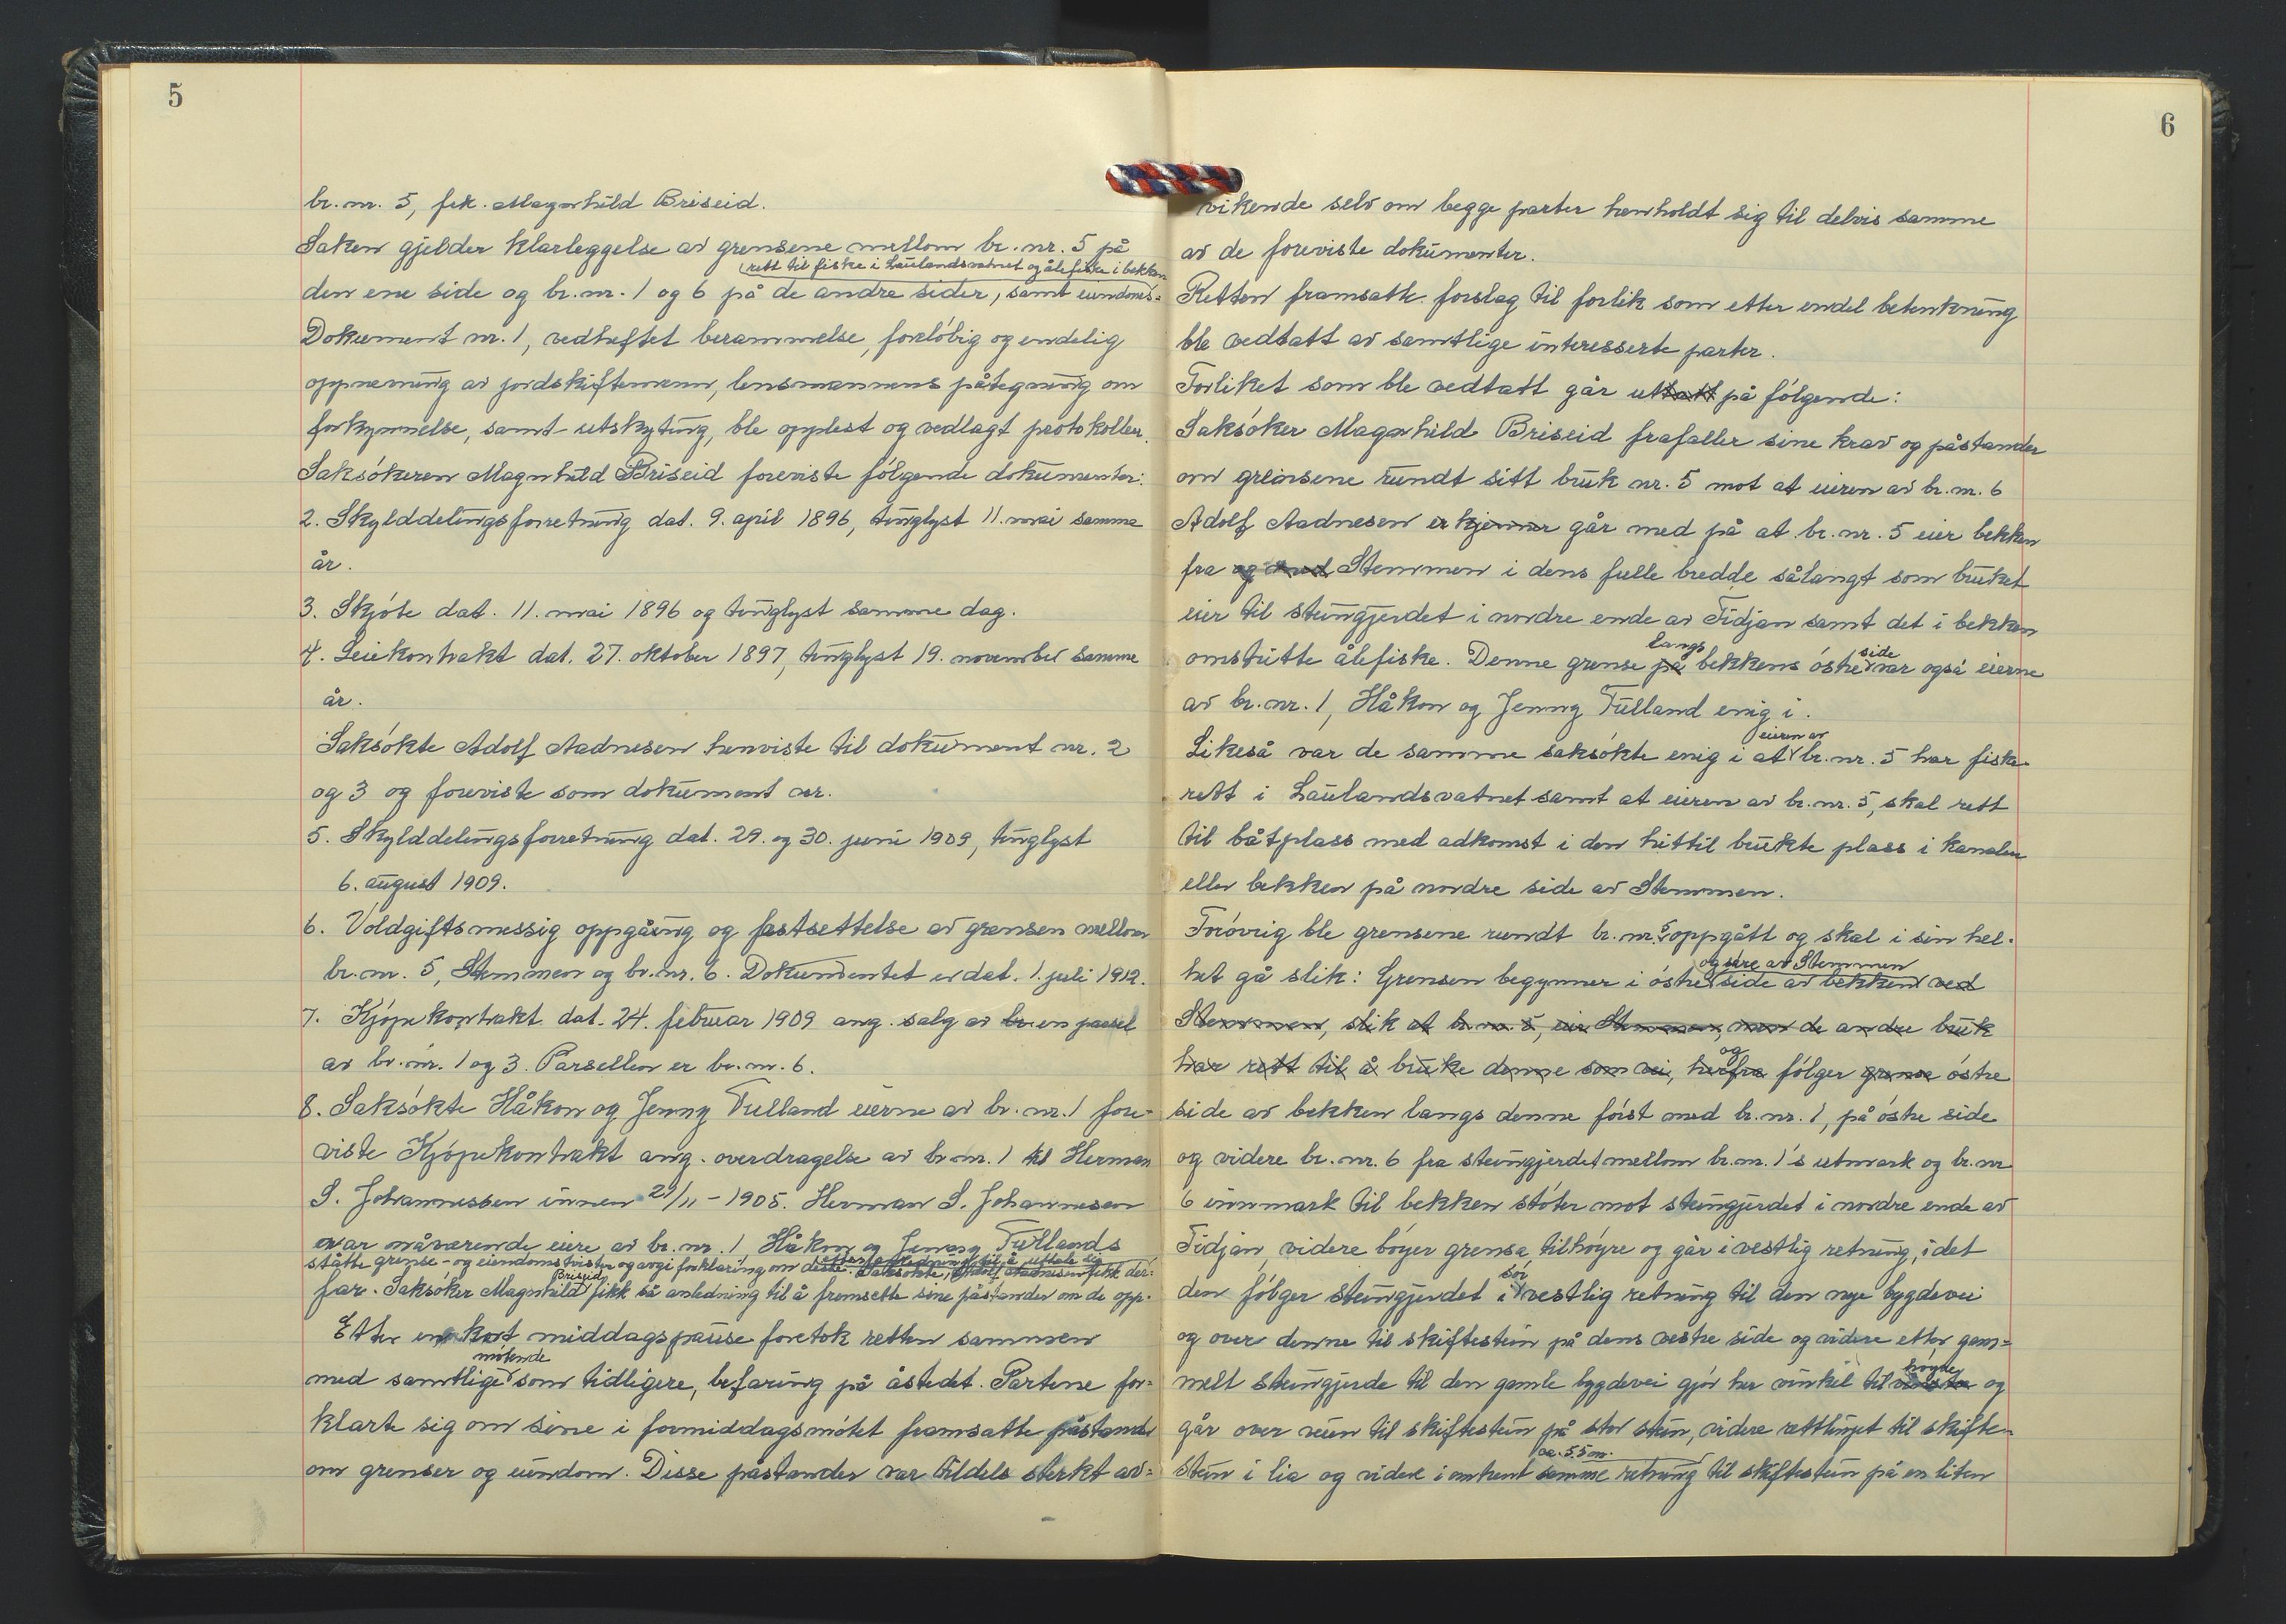 5
br. nr. 5, frk. Magnhild Briseid.
Saken gjelder klarleggelse av grensene mellom br. nr. 5 på
rett til fiske i Laulandsvatnet og ålefiske i bekken
den ene side og br. nr. 1 og 6 på de andre sider, samt eiendoms=
Dokument nr. 1, vedheftet berammelse, foreløbig og endelig
oppnevning av jordskiftemenn, lensmannens påtegning om
forkynnelse, samt utskyting, ble opplest og vedlagt protokollen.
Saksøkeren Magnhild Briseid foreviste følgende dokumenter:
2. Skylddelingsforretning dat. 9. april 1896, tinglyst 11. mai samme
år.
3. Skjøte dat. 11. mai 1896 og tinglyst samme dag.
4. Leiekontrakt dat. 27. oktober 1897, tinglyst 19. november samme
år.
Saksøkte Adolf Aadnesen henviste til dokument nr. 2
og 3 og foreviste som dokument nr.
5. Skylddelingsforretning dat. 29. og 30. juni 1909, tinglyst
6. august 1909.
6. Voldgiftsmessig oppgåing og fastsettelse av grensen mellom
br. nr. 5, Stemmen og br. nr. 6. Dokumentet er dat. 1. juli 1912.
7. Kjøpekontrakt dat. 24. februar 1909 ang. salg av br en parsel
av br. nr. 1 og 3. Parsellen er br. nr. 6.
8. Saksøkte Håkon og Jenny Tulland eierne av br. nr. 1 fore-
viste Kjøpekontrakt ang. overdragelse av br. nr. 1 til Herman
S. Johannessen innen 21/11 - 1905. Herman S. Johannesen
var nåværende eiere av br. nr. 1 Håkon og Jenny Tullands
etter anledning til å uttale sig
ståtte grense- og eiendomstvister og avgi forklaring om disse. Saksøkte, Adolf Aadnesen fikk der:
Briseid
far. Saksøker Magnhild fikk så anledning til å fremsette sine påstander om de opp-
Etter en kort middagspause foretok retten sammen
møtende
med samtlige som tidligere, befaring på åstedet. Partene for=
klarte sig om sine i formiddagsmøtet framsatte påstander
om grenser og eiendom. Disse påstander var tildels sterkt av=
6
vikende selv om begge parter henholdt sig til delvis samme
av de foreviste dokumenter.
Retten framsatte forslag til forlik som etter endel betenkning
ble vedtatt av samtlige interesserte parter.
Forliket som ble vedtatt går uttatt på følgende:
Saksøker Magnhild Briseid frafaller sine krav og påstander
om grensene rundt sitt bruk nr. 5 mot at eieren av br. nr. 6
Adolf Aadnesen erkjenner går med på at br. nr. 5 eier bekken
fra og med Stemmen i dens fulle bredde sålangt som bruket
eier til steingjerdet i nordre ende av Tidjan samt det i bekken
langs side
omstritte ålefiske. Denne grense på bekkens østre var også eierne
av br. nr. 1, Håkon og Jenny Tulland enig i.
eieren av
Likeså var de samme saksøkte enig i at br. nr. 5 har fiske-
rett i Laulandsvatnet samt at eieren av br. nr. 5, skal rett
til båtplass med adkomst i den hittil brukte plass i kanalen
eller bekken på nordre side av Stemmen.
Forøvrig ble grensene rundt br. nr. 5 oppgått og skal i sin hel-
og søre av Stemmen
het gå slik: Grensen begynner i østre side av bekken ved
Stemmen, slik at br. nr. 5, eier Stemmen, men de andre bruk
og
har rett til å bruke denne som vei, herfra følger grense østre
side av bekken langs denne først med br. nr. 1, på østre side
og videre br. nr. 6 fra steingjerdet mellom br. nr. 1's utmark og br. nr.
6 innmark til bekken støter mot steingjerdet i nordre ende av
Tidjan, videre bøyer grensa tilhøyre og går i vestlig retning, idet
sør
den følger steingjerdet i vestlig retning til den nye bygdevei
og over denne til skiftestein på dens vestre side og videre etter gam=
høyre
melt steingjerde til den gamle bygdevei gjør her vinkel til venstre og
går over veien til skiftestein på stor stein, videre rettlinjet til skifte-
ca. 55 m.
stein i lia og videre i omtrent samme retning til skiftestein på en liten